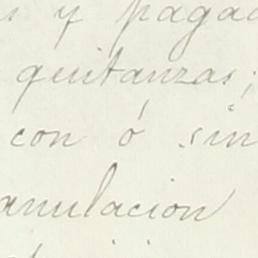 s y pagad
quitanzas;
con ó sin
anulacion